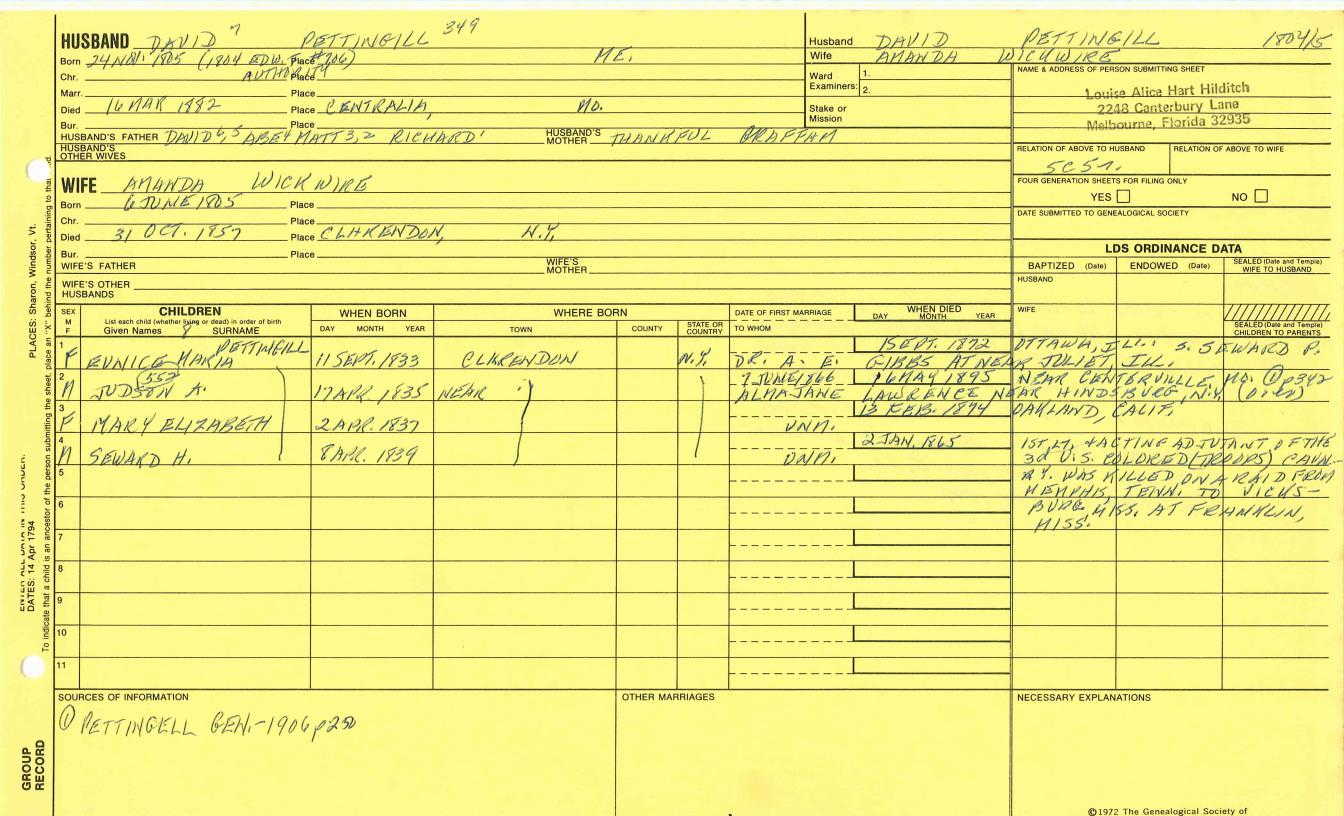 HUSBAND DAVID 7 PETTINGILL 349
Born 24 NOV. 1805 (1804 EDW. F. #706) Place ME.
Chr. AUTHORITY Place
Marr. Place
Died 16 MAR 1882 Place CENTRALIA, MO.
Bur. Place
HUSBAND'S FATHER DAVID 6,5 ABE 4 MATT 3,2 RICHARD 1 HUSBAND'S MOTHER THANKFUL GRAFFAM
HUSBAND'S OTHER WIVES
WIFE AMANDA WICKWIRE
Born 6 JUNE 1805 Place
Chr. Place
Died 31 OCT. 1857 Place CLARENDON, N.Y.
Bur. Place
WIFE'S FATHER WIFE'S MOTHER
WIFE'S OTHER HUSBANDS
Husband DAVID PETTINGILL 1804/5
Wife AMANDA WICKWIRE
Ward Examiners: 1.
2.
Stake or Mission
NAME & ADDRESS OF PERSON SUBMITTING SHEET
Louise Alice Hart Hilditch
2248 Canterbury Lane
Melbourne, Florida 32935
RELATION OF ABOVE TO HUSBAND RELATION OF ABOVE TO WIFE
5C5r.
FOUR GENERATION SHEETS FOR FILING ONLY
YES NO
DATE SUBMITTED TO GENEALOGICAL SOCIETY
LDS ORDINANCE DATA
BAPTIZED (Date) ENDOWED (Date) SEALED (Date and Temple) WIFE TO HUSBAND
HUSBAND
WIFE
SEALED (Date and Temple) CHILDREN TO PARENTS
SEX M F
CHILDREN
List each child (whether living or dead) in order of birth
Given Names 8 SURNAME
WHEN BORN
DAY MONTH YEAR
WHERE BORN
TOWN COUNTY STATE OR COUNTRY
DATE OF FIRST MARRIAGE
TO WHOM
WHEN DIED
DAY MONTH YEAR
1 PETTINGILL 1 SEPT. 1872 OTTAWA, ILL.: S. SEWARD P.
F EUNICE MARIA 11 SEPT. 1833 CLARENDON N.Y. DR. A. E. GIBBS AT NEAR JULIET, ILL.
2 552 7 JUNE 1866 16 MAY 1895 NEAR CENTERVILLE, MO. ① p342
M JUDSON A. 17 APR. 1835 NEAR ALMA JANE LAWRENCE NEAR HINDSBURG, N.Y. (DIED)
3 13 FEB. 1894 OAKLAND, CALIF.
F MARY ELIZABETH 2 APR. 1837 UNM.
4 2 JAN. 1865 1ST. LT. & ACTING ADJUTANT OF THE
M SEWARD H. 8 APR. 1839 UNM. 3d U.S. COLORED (TROOPS) CAVAL-
5 RY. WAS KILLED ON A RAID FROM
6 MEMPHIS, TENN. TO VICKS-
BURG, MISS. AT FRANKLIN,
7 MISS.
8
9
10
11
SOURCES OF INFORMATION
① PETTINGELL GEN.-1906 p250
OTHER MARRIAGES
NECESSARY EXPLANATIONS
©1972 The Genealogical Society of
PLACES: Sharon, Windsor, Vt.
To indicate that a child is an ancestor of the person submitting the sheet, place an "X" behind the number pertaining to that
ENTER ALL DATA IN THIS ORDER:
DATES: 14 Apr 1794
GROUP RECORD